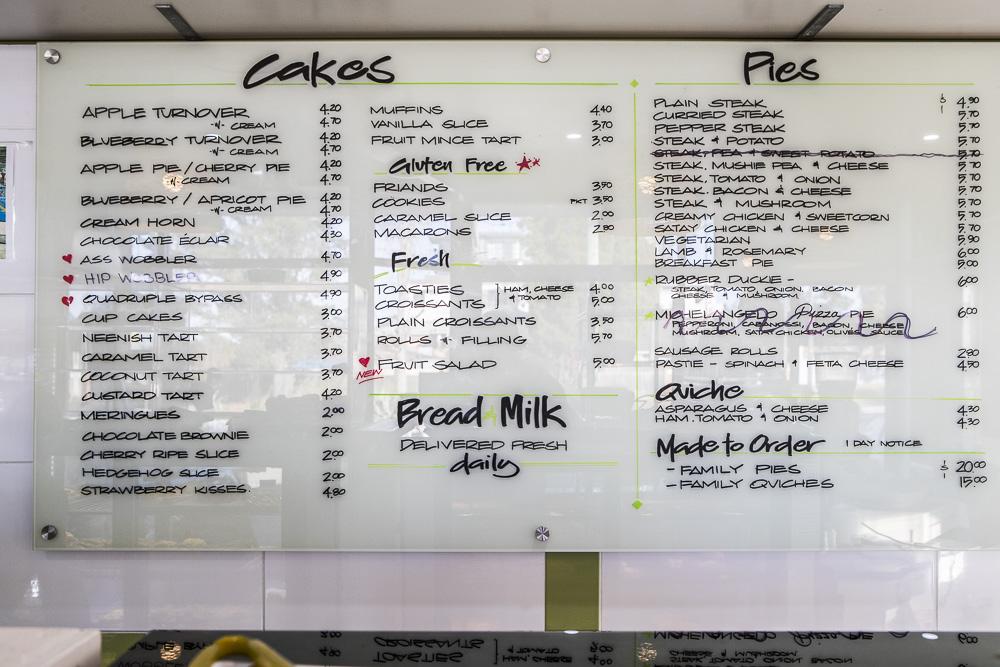 Cakes
APPLE TURNOVER 4.20
-W- CREAM 4.70
BLUEBERRY TURNOVER 4.20
-W- CREAM 4.70
APPLE PIE / CHERRY PIE 4.20
-W- CREAM 4.70
BLUEBERRY / APRICOT PIE 4.20
-W- CREAM 4.70
CREAM HORN 4.20
CHOCOLATE ÉCLAIR 4.30
ASS WOBBLER 4.70
HIP WOBBLER 4.90
QUADRUPLE BYPASS 4.90
CUP CAKES 3.00
NEENISH TART 3.70
CARAMEL TART 3.70
COCONUT TART 3.70
CUSTARD TART 4.20
MERINGUES 2.00
CHOCOLATE BROWNIE 2.00
CHERRY RIPE SLICE 2.00
HEDGEHOG SLICE 2.00
STRAWBERRY KISSES. 4.80
MUFFINS 4.40
VANILLA SLICE 3.70
FRUIT MINCE TART 3.00
Gluten Free
FRIANDS 3.50
COOKIES PKT 3.50
CARAMEL SLICE 2.00
MACARONS 2.80
Fresh
TOASTIES HAM, CHEESE 4.00
CROISSANTS & TOMATO 5.00
PLAIN CROISSANTS 3.50
ROLLS & FILLING 5.70
FRUIT SALAD 5.00
NEW
Bread & Milk
DELIVERED FRESH
daily
Pies
PLAIN STEAK $ 4.90
CURRIED STEAK 5.70
PEPPER STEAK 5.70
STEAK & POTATO 5.70
STEAK, PEA & SWEET POTATO 5.70
STEAK, MUSHIE PEA & CHEESE 5.70
STEAK, TOMATO & ONION 5.70
STEAK, BACON & CHEESE 5.70
STEAK & MUSHROOM 5.70
CREAMY CHICKEN & SWEETCORN 5.70
SATAY CHICKEN & CHEESE 5.70
VEGETARIAN 5.90
LAMB & ROSEMARY 6.00
BREAKFAST PIE 5.00
RUBBER DUCKIE - 6.00
STEAK, TOMATO, ONION, BACON
CHEESE & MUSHROOM.
MICHELANGELO Pizza PIE 6.00
PEPPERONI, CABANOSSI, BACON, CHEESE
MUSHROOM, SATAY CHICKEN, OLIVES, SAUCE
SAUSAGE ROLLS 2.80
PASTIE - SPINACH & FETA CHEESE 4.50
Quiche
ASPARAGUS & CHEESE 4.30
HAM, TOMATO & ONION 4.30
Made to Order 1 DAY NOTICE
- FAMILY PIES $ 20.00
- FAMILY QUICHES 15.00